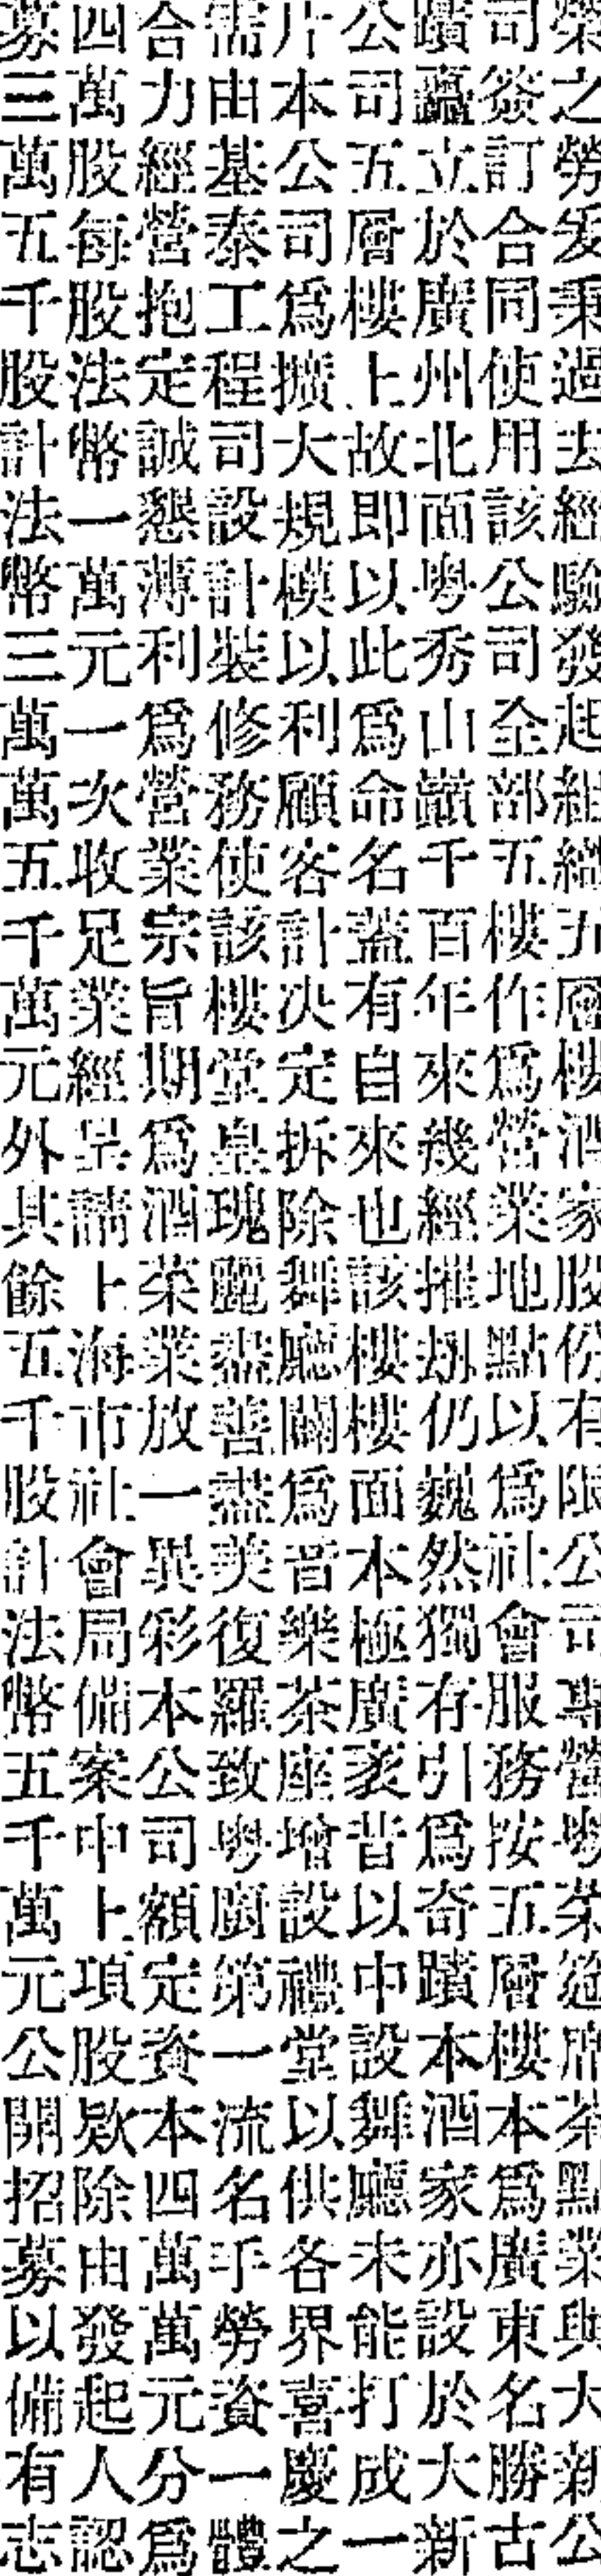 榮之勞爰秉過去經驗發起組織五層樓酒家股份有限公司專營粤菜筵席茶點業與大新公
司簽訂合同使用該公司全部五樓作爲營業地點以爲社會服務按五層樓本爲廣東名勝古
蹟矗立於廣州北面粤秀山巔千百年來幾經摧刼仍巍然獨存引爲奇蹟本酒家亦設於大新
公司五層樓上故即以此爲命名蓋有自來也該樓樓面本極廣袤昔以中設舞廳未能打成一
片本公司爲擴大規模以利顧客計决定拆除舞廳闢爲音樂茶座增設禮堂以供各界喜慶之
需由基泰工程司設計裝修務使該樓堂皇瑰麗盡善盡美復羅致粤廚第一流名手勞資一體
合力經營抱定誠懇薄利爲營業宗旨期爲酒菜業放一異彩本公司額定資本四萬萬元分爲
四萬股每股法幣一萬元一次收足業經呈請上海市社會局備案中上項股欵除由發起人認
募三萬五千股計法幣三萬萬五千萬元外其餘五千股計法幣五千萬元公開招募以備有志